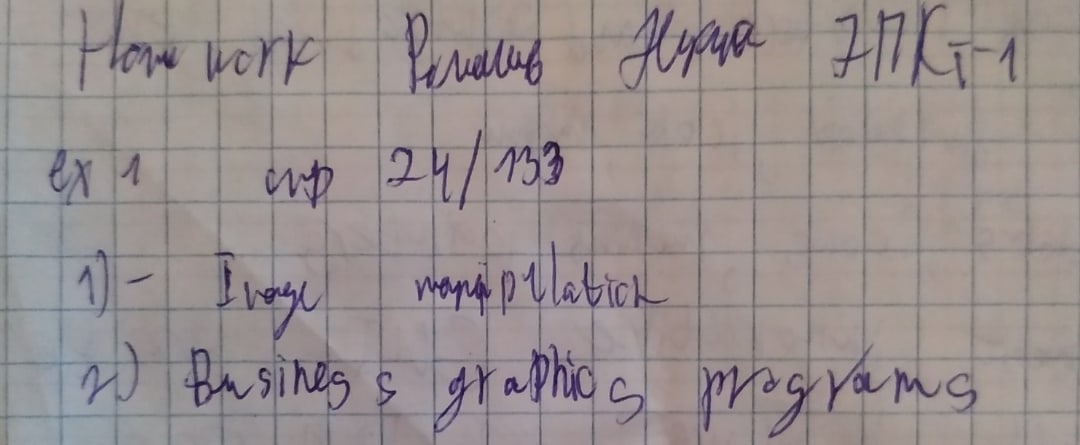 Home work 7ПКт-1
ex 1 стр 24/133
1) - Image manipulation
2) Business graphics programs